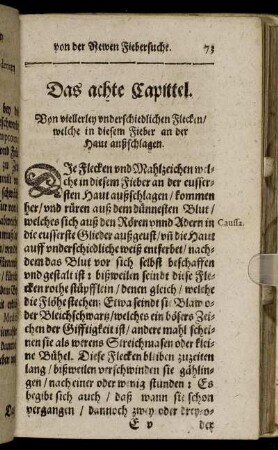 von der Newen Fiebersucht. 73
Das achte Capittel.
Von viellerley vnderschiedlichen Flecken/
welche in diesem Fieber an der
Haut außschlagen.
DIe Flecken vnd Mahlzeichen wel-
che in diesem Fieber an der eusser-
sten Haut außschlagen / kommen
her/vnd rüren auß dem dünnesten Blut /
welches sich auß den Rören vnnd Adern in Caussa.
die eusserste Glieder außgeust/ vñ die Haut
auff vnderschiedliche weiß entferbet / nach-
dem das Blut vor sich selbst beschaffen
vnd gestalt ist : bißweilen seindt diese Fle-
cken rothe stüpfflein / denen gleich / welche
die Flöhe stechen: Etwa seindt sie Blaw o-
der Bleichschwartz/welches ein bösers Zei-
chen der Gifftigkeit ist / ander mahl schei-
nen sie als weren Streichmasen oder klei-
ne Bühel. Diese Flecken bleiben zuzeiten
lang / bißweilen verschwinden sie gählin-
gen / nach einer oder wenig stunden : Es
begibt sich auch / daß wann sie schon
vergangen / dannoch zwey oder drey o-
E v der